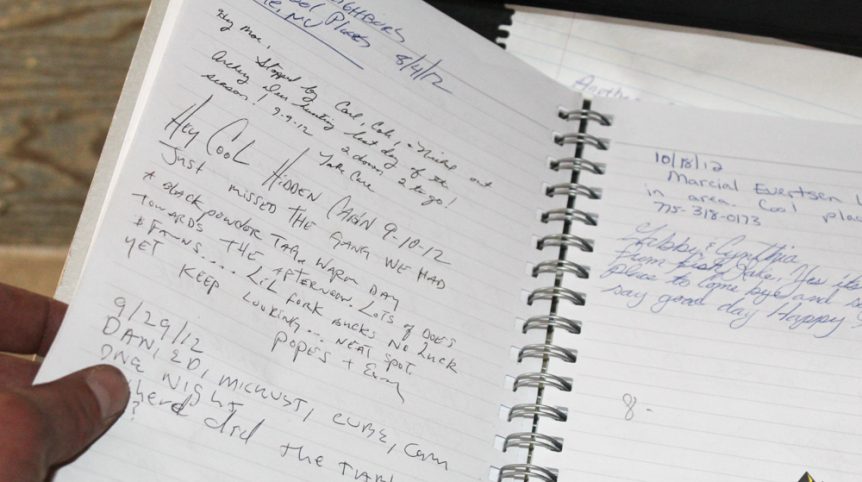 NEIGHBORS
Cool Places
, NV 8/4/12
Hey Moe,
Stopped by Carl, Cole, + out
Archery Deer hunting last day of the
season! 9-9-12 2 down 2 to go!
Take Care
HEY COOL HIDDEN CABIN 9-10-12
JUST MISSED THE GANG WE HAD
A BLACKPOWDER TAG. WARM DAY
TOWARDS THE AFTERNOON. LOTS OF DOES
& FAWNS.... LIL FORK BUCKS NO LUCK
YET KEEP LOOKING... NEAT SPOT.
POPES +
9/29/12
DAN, ED, CUBE, Cam
ONE NIGHT
where did the
?
Another
10/18/12
Marcial Evertsen
in area. Cool place
775-318-0173
Gabby & Cynthia
from Fish Lake. Yes its
place to come bye and
say good day Happy
8-